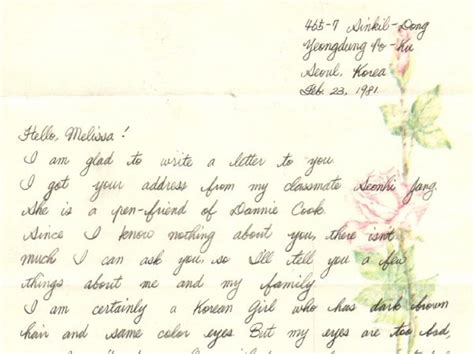 465-7 Sinkil-Dong
Yeongdung Po-ku
Seoul, Korea
Feb. 23, 1981.
Hello, Melissa!
I am glad to write a letter to you
I got your address from my classmate Seonhi Jang.
She is a pen-friend of Dannie Cook.
Since I know nothing about you, there isn't
much I can ask you, so I'll tell you a few
things about me and my family.
I am certainly a Korean Girl who has dark brown
hair and same color eyes. But my eyes are too